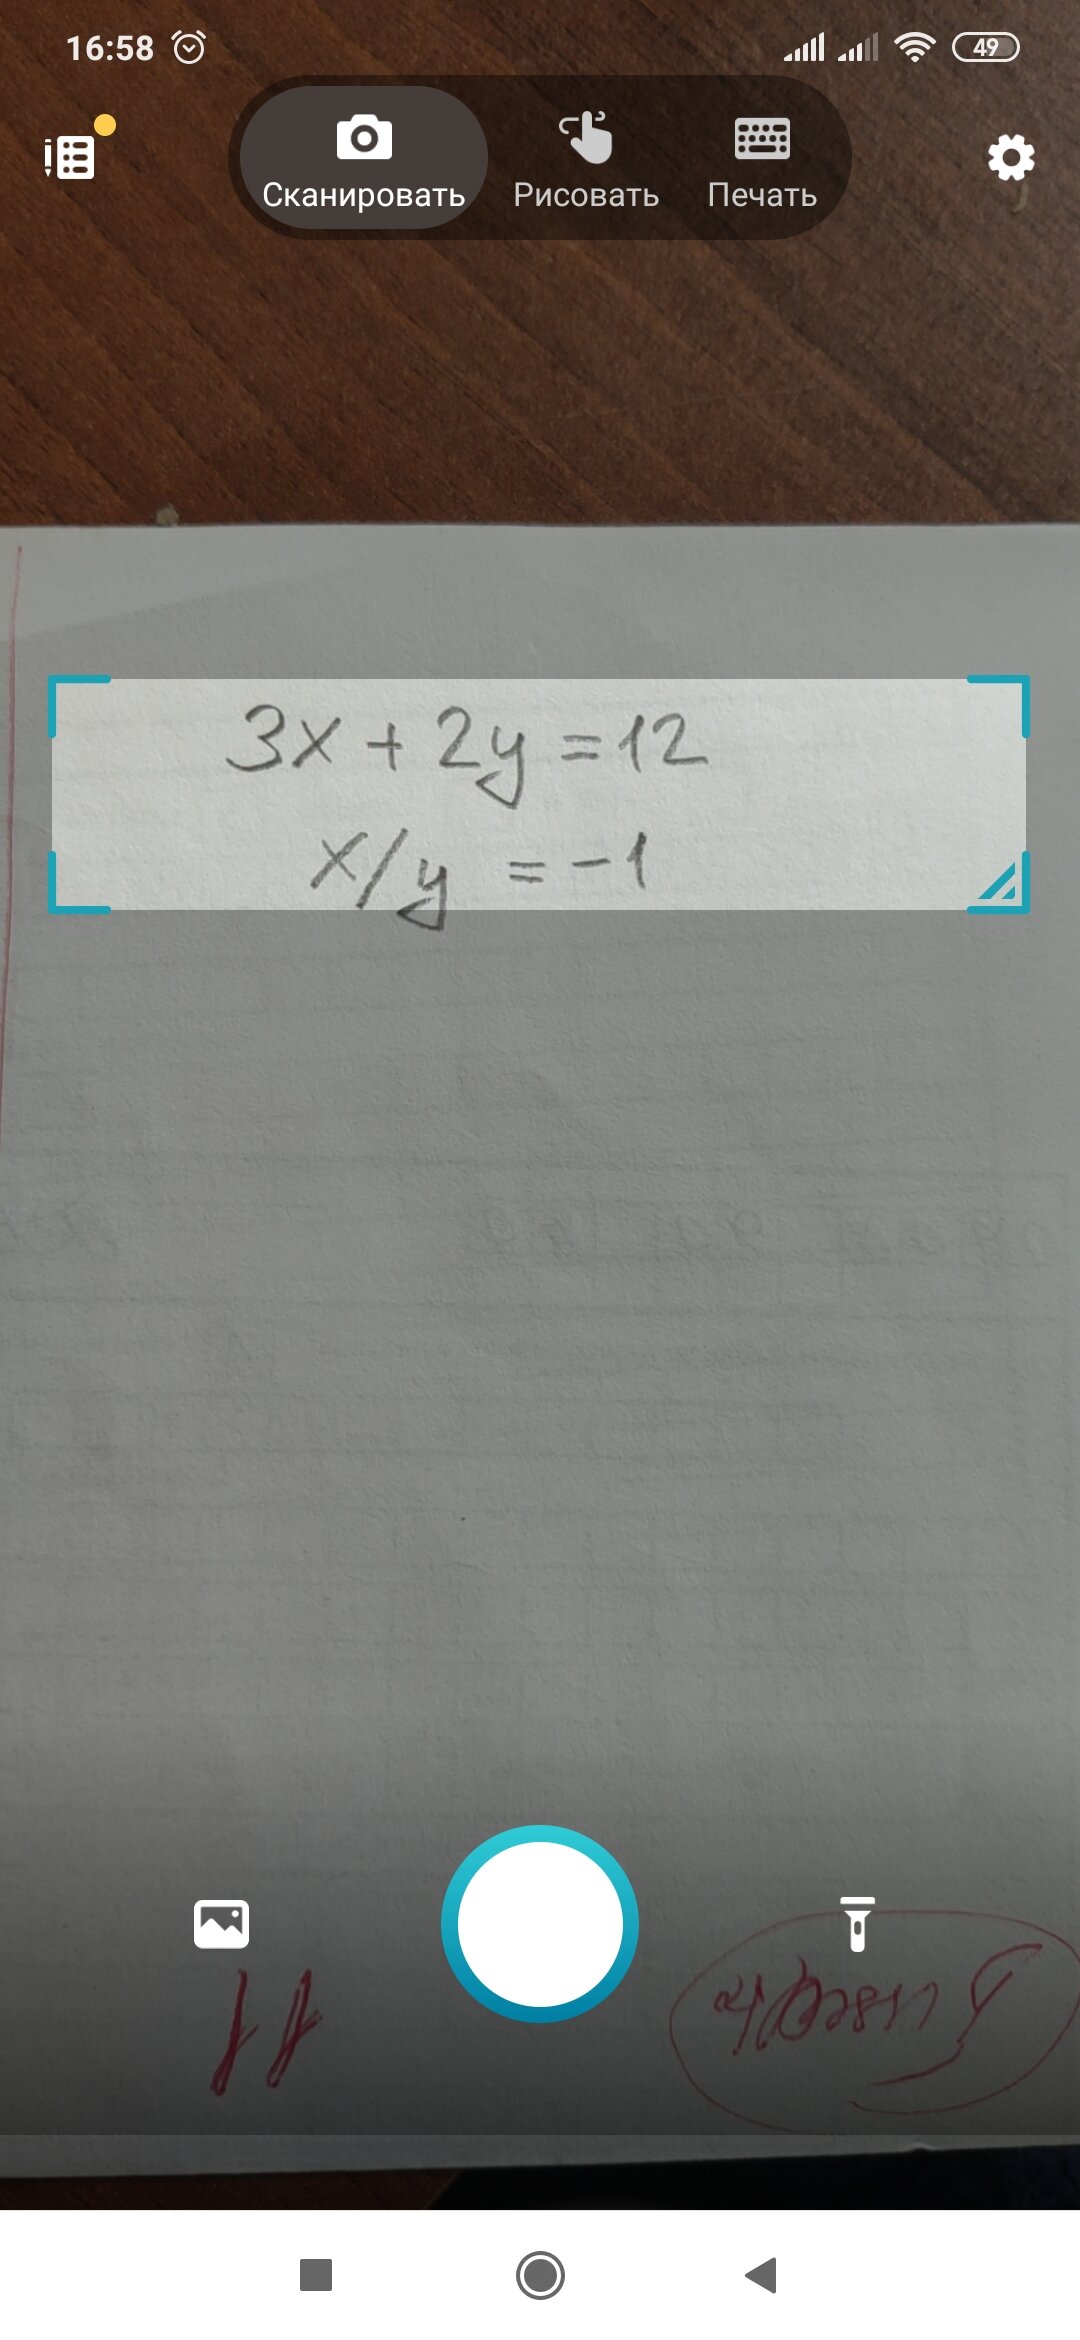 16:58
49
Сканировать
Рисовать
Печать
3x + 2y = 12
x/y = -1